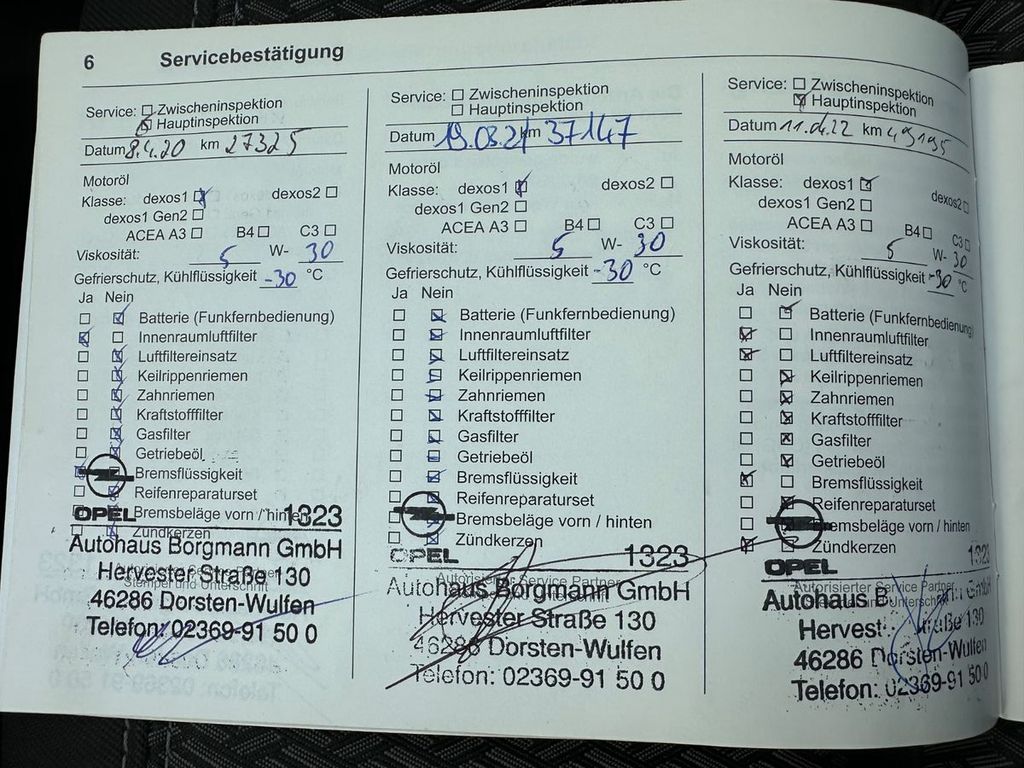 6 Servicebestätigung
Service: Zwischeninspektion
Hauptinspektion
Datum 8.4.20 km 27325
Motoröl
Klasse: dexos1 dexos2
dexos1 Gen2
ACEA A3 B4 C3
Viskosität: 5 W- 30
Gefrierschutz, Kühlflüssigkeit -30 °C
Ja Nein
Batterie (Funkfernbedienung)
Innenraumluftfilter
Luftfiltereinsatz
Keilrippenriemen
Zahnriemen
Kraftstofffilter
Gasfilter
Getriebeöl
Bremsflüssigkeit
Reifenreparaturset
Bremsbeläge vorn / hinten
Zündkerzen
OPEL 1323
Autohaus Borgmann GmbH
Hervester Straße 130
Stempel und Unterschrift
46286 Dorsten-Wulfen
Telefon: 02369-91 50 0
Service: Zwischeninspektion
Hauptinspektion
Datum 19.08.21 km 37147
Motoröl
Klasse: dexos1 dexos2
dexos1 Gen2
ACEA A3 B4 C3
Viskosität: 5 W- 30
Gefrierschutz, Kühlflüssigkeit -30 °C
Ja Nein
Batterie (Funkfernbedienung)
Innenraumluftfilter
Luftfiltereinsatz
Keilrippenriemen
Zahnriemen
Kraftstofffilter
Gasfilter
Getriebeöl
Bremsflüssigkeit
Reifenreparaturset
Bremsbeläge vorn / hinten
Zündkerzen
OPEL 1323
Autorisierter Service Partner
Autohaus Borgmann GmbH
Hervester Straße 130
46286 Dorsten-Wulfen
Telefon: 02369-91 50 0
Service: Zwischeninspektion
Hauptinspektion
Datum 11.04.22 km 49195
Motoröl
Klasse: dexos1 dexos2
dexos1 Gen2
ACEA A3 B4 C3
Viskosität: 5 W- 30
Gefrierschutz, Kühlflüssigkeit -30 °C
Ja Nein
Batterie (Funkfernbedienung)
Innenraumluftfilter
Luftfiltereinsatz
Keilrippenriemen
Zahnriemen
Kraftstofffilter
Gasfilter
Getriebeöl
Bremsflüssigkeit
Reifenreparaturset
Bremsbeläge vorn / hinten
Zündkerzen
OPEL 1323
Autorisierter Service Partner
Autohaus
Straße 130
46286 Dorsten-Wulfen
Telefon: 02369-91 50 0